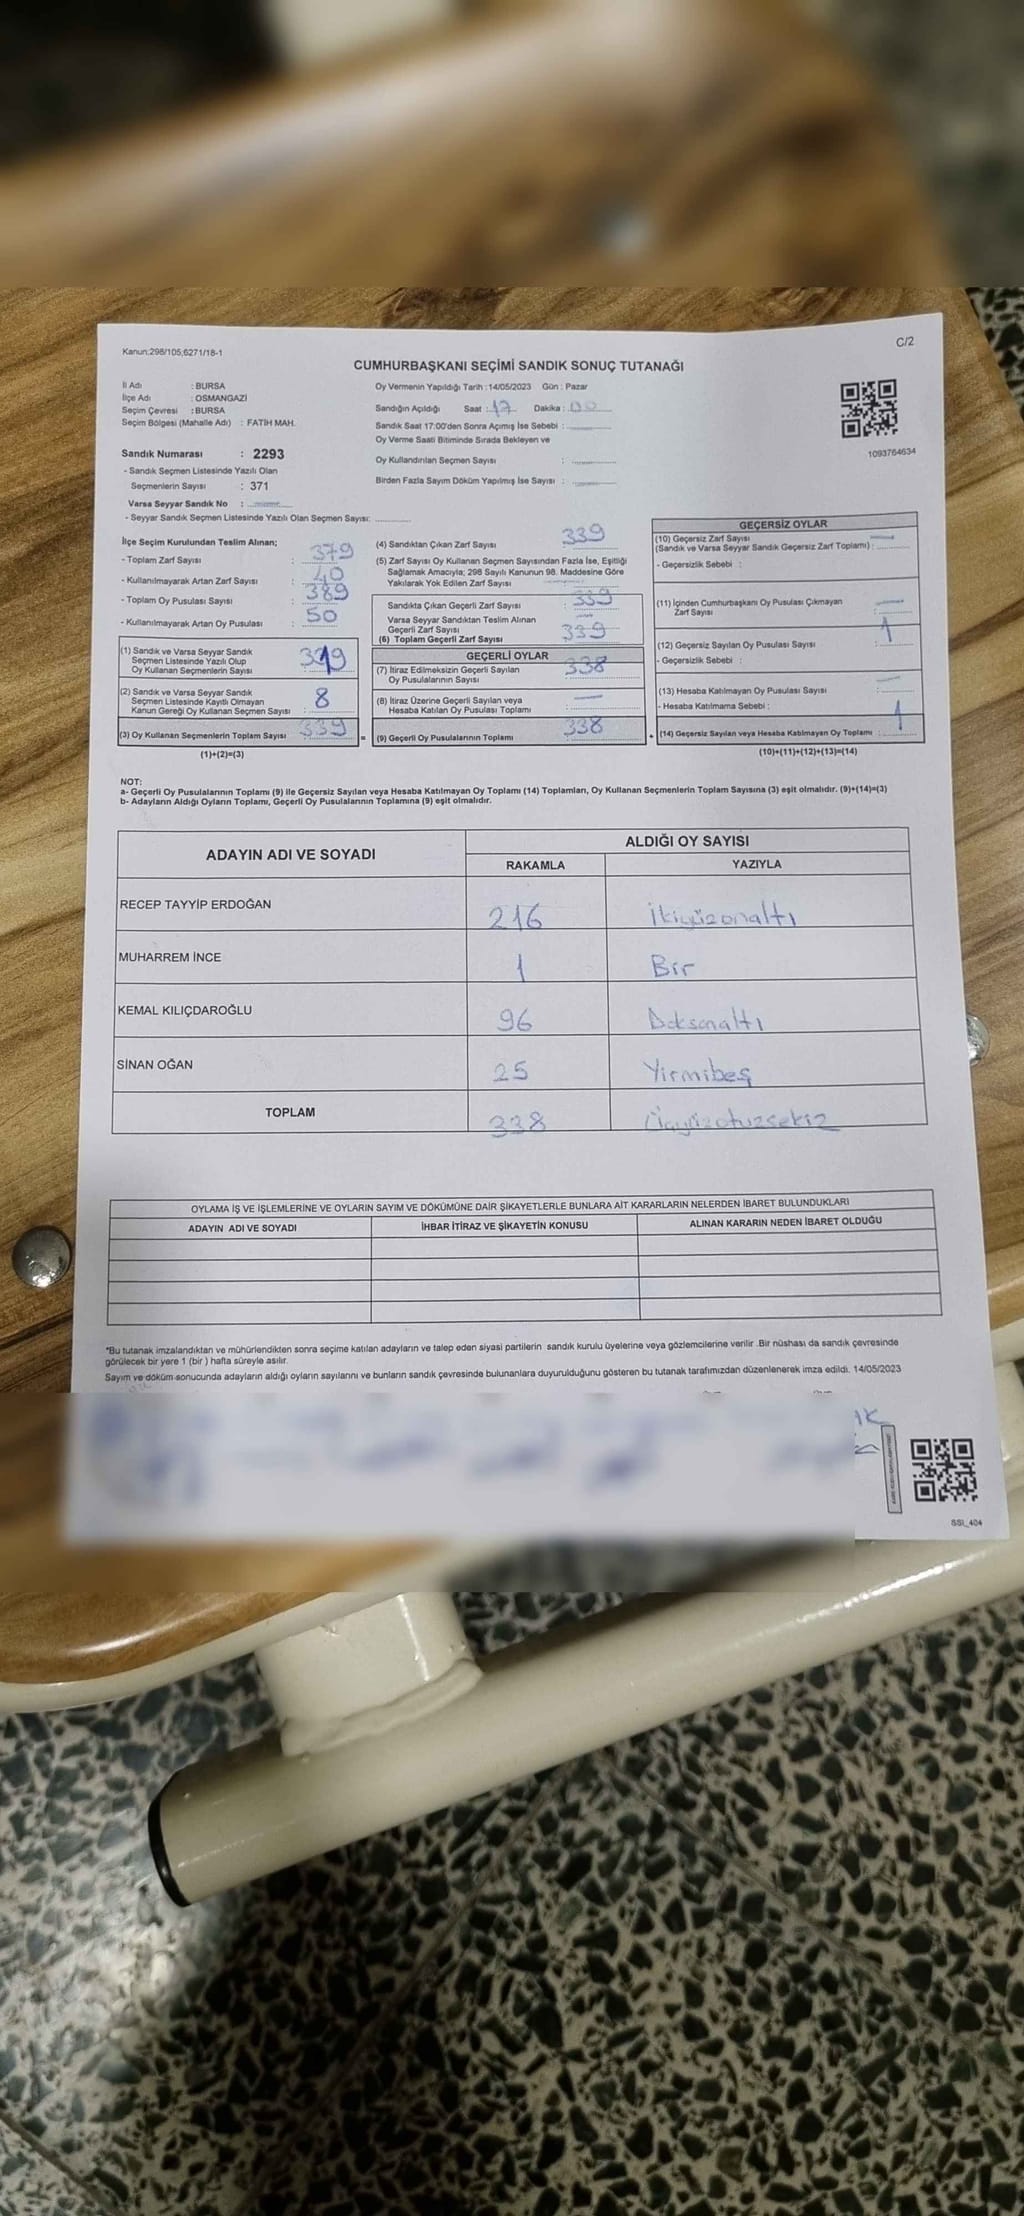 Kanun:298/105;6271/18-1
C/2
CUMHURBAŞKANI SEÇİMİ SANDIK SONUÇ TUTANAĞI
İl Adı : BURSA
İlçe Adı : OSMANGAZİ
Seçim Çevresi : BURSA
Seçim Bölgesi (Mahalle Adı) : FATİH MAH.
Sandık Numarası : 2293
- Sandık Seçmen Listesinde Yazılı Olan
Seçmenlerin Sayısı : 371
Varsa Seyyar Sandık No :
- Seyyar Sandık Seçmen Listesinde Yazılı Olan Seçmen Sayısı:
Oy Vermenin Yapıldığı Tarih :14/05/2023 Gün : Pazar
Sandığın Açıldığı Saat : 17 Dakika : 00
Sandık Saat 17:00'den Sonra Açımış İse Sebebi :
Oy Verme Saati Bitiminde Sırada Bekleyen ve
Oy Kullandırılan Seçmen Sayısı :
Birden Fazla Sayım Döküm Yapılmış İse Sayısı :
1093764634
İlçe Seçim Kurulundan Teslim Alınan;
- Toplam Zarf Sayısı : 379
- Kullanılmayarak Artan Zarf Sayısı : 40
- Toplam Oy Pusulası Sayısı : 389
- Kullanılmayarak Artan Oy Pusulası : 50
(1) Sandık ve Varsa Seyyar Sandık
Seçmen Listesinde Yazılı Olup
Oy Kullanan Seçmenlerin Sayısı
(2) Sandık ve Varsa Seyyar Sandık
Seçmen Listesinde Kayıtlı Olmayan
Kanun Gereği Oy Kullanan Seçmen Sayısı : 8
(3) Oy Kullanan Seçmenlerin Toplam Sayısı : 339
(1)+(2)=(3)
(4) Sandıktan Çıkan Zarf Sayısı : 339
(5) Zarf Sayısı Oy Kullanan Seçmen Sayısından Fazla İse, Eşitliği
Sağlamak Amacıyla; 298 Sayılı Kanunun 98. Maddesine Göre
Yakılarak Yok Edilen Zarf Sayısı :
Sandıkta Çıkan Geçerli Zarf Sayısı : 339
Varsa Seyyar Sandıktan Teslim Alınan
Geçerli Zarf Sayısı :
(6) Toplam Geçerli Zarf Sayısı : 339
GEÇERLİ OYLAR
(7) İtiraz Edilmeksizin Geçerli Sayılan
Oy Pusulalarının Sayısı : 338
(8) İtiraz Üzerine Geçerli Sayılan veya
Hesaba Katılan Oy Pusulası Toplamı : —
= (9) Geçerli Oy Pusulalarının Toplamı : 338
GEÇERSİZ OYLAR
(10) Geçersiz Zarf Sayısı
(Sandık ve Varsa Seyyar Sandık Geçersiz Zarf Toplamı) :
- Geçersizlik Sebebi :
(11) İçinden Cumhurbaşkanı Oy Pusulası Çıkmayan
Zarf Sayısı : —
(12) Geçersiz Sayılan Oy Pusulası Sayısı : 1
- Geçersizlik Sebebi :
(13) Hesaba Katılmayan Oy Pusulası Sayısı : —
- Hesaba Katılmama Sebebi :
+ (14) Geçersiz Sayılan veya Hesaba Katılmayan Oy Toplamı : 1
(10)+(11)+(12)+(13)=(14)
NOT:
a- Geçerli Oy Pusulalarının Toplamı (9) ile Geçersiz Sayılan veya Hesaba Katılmayan Oy Toplamı (14) Toplamları, Oy Kullanan Seçmenlerin Toplam Sayısına (3) eşit olmalıdır. (9)+(14)=(3)
b- Adayların Aldığı Oyların Toplamı, Geçerli Oy Pusulalarının Toplamına (9) eşit olmalıdır.
ADAYIN ADI VE SOYADI ALDIĞI OY SAYISI
RAKAMLA YAZIYLA
RECEP TAYYİP ERDOĞAN 216 İkiyüzonaltı
MUHARREM İNCE 1 Bir
KEMAL KILIÇDAROĞLU 96 Doksanaltı
SİNAN OĞAN 25 Yirmibeş
TOPLAM 338 Üçyüzotuzsekiz
OYLAMA İŞ VE İŞLEMLERİNE VE OYLARIN SAYIM VE DÖKÜMÜNE DAİR ŞİKAYETLERLE BUNLARA AİT KARARLARIN NELERDEN İBARET BULUNDUKLARI
ADAYIN ADI VE SOYADI İHBAR İTİRAZ VE ŞİKAYETİN KONUSU ALINAN KARARIN NEDEN İBARET OLDUĞU
*Bu tutanak imzalandıktan ve mühürlendikten sonra seçime katılan adayların ve talep eden siyasi partilerin sandık kurulu üyelerine veya gözlemcilerine verilir .Bir nüshası da sandık çevresinde
görülecek bir yere 1 (bir ) hafta süreyle asılır.
Sayım ve döküm sonucunda adayların aldığı oyların sayılarını ve bunların sandık çevresinde bulunanlara duyurulduğunu gösteren bu tutanak tarafımızdan düzenlenerek imza edildi. 14/05/2023
SSI_404